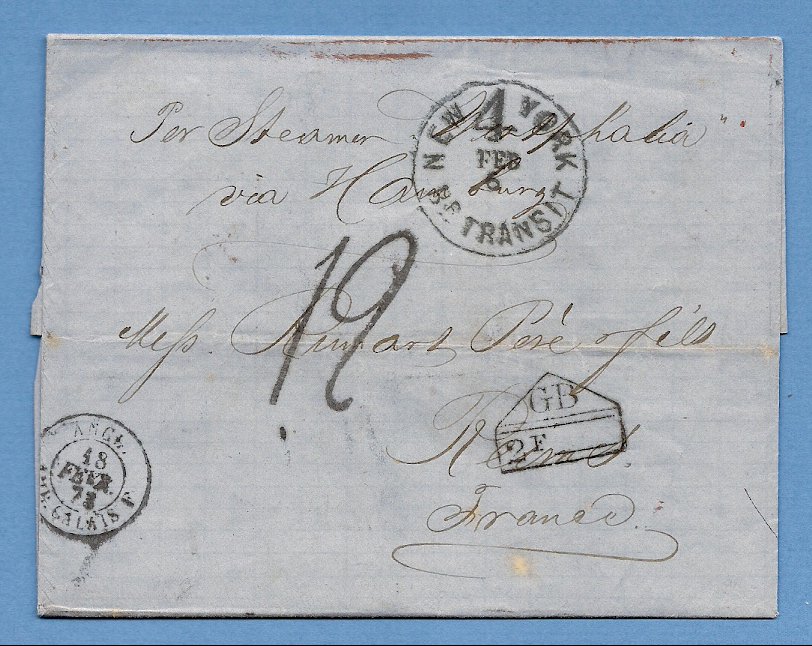 Per Steamer "Westphalia"
via Hamburg
NEW YORK
4
FEB
6
BR TRANSIT
12
Messrs. Père & fils
GB
2F
Reims.
France.
ANGL.
18
FEVR.
73
AMB. CALAIS